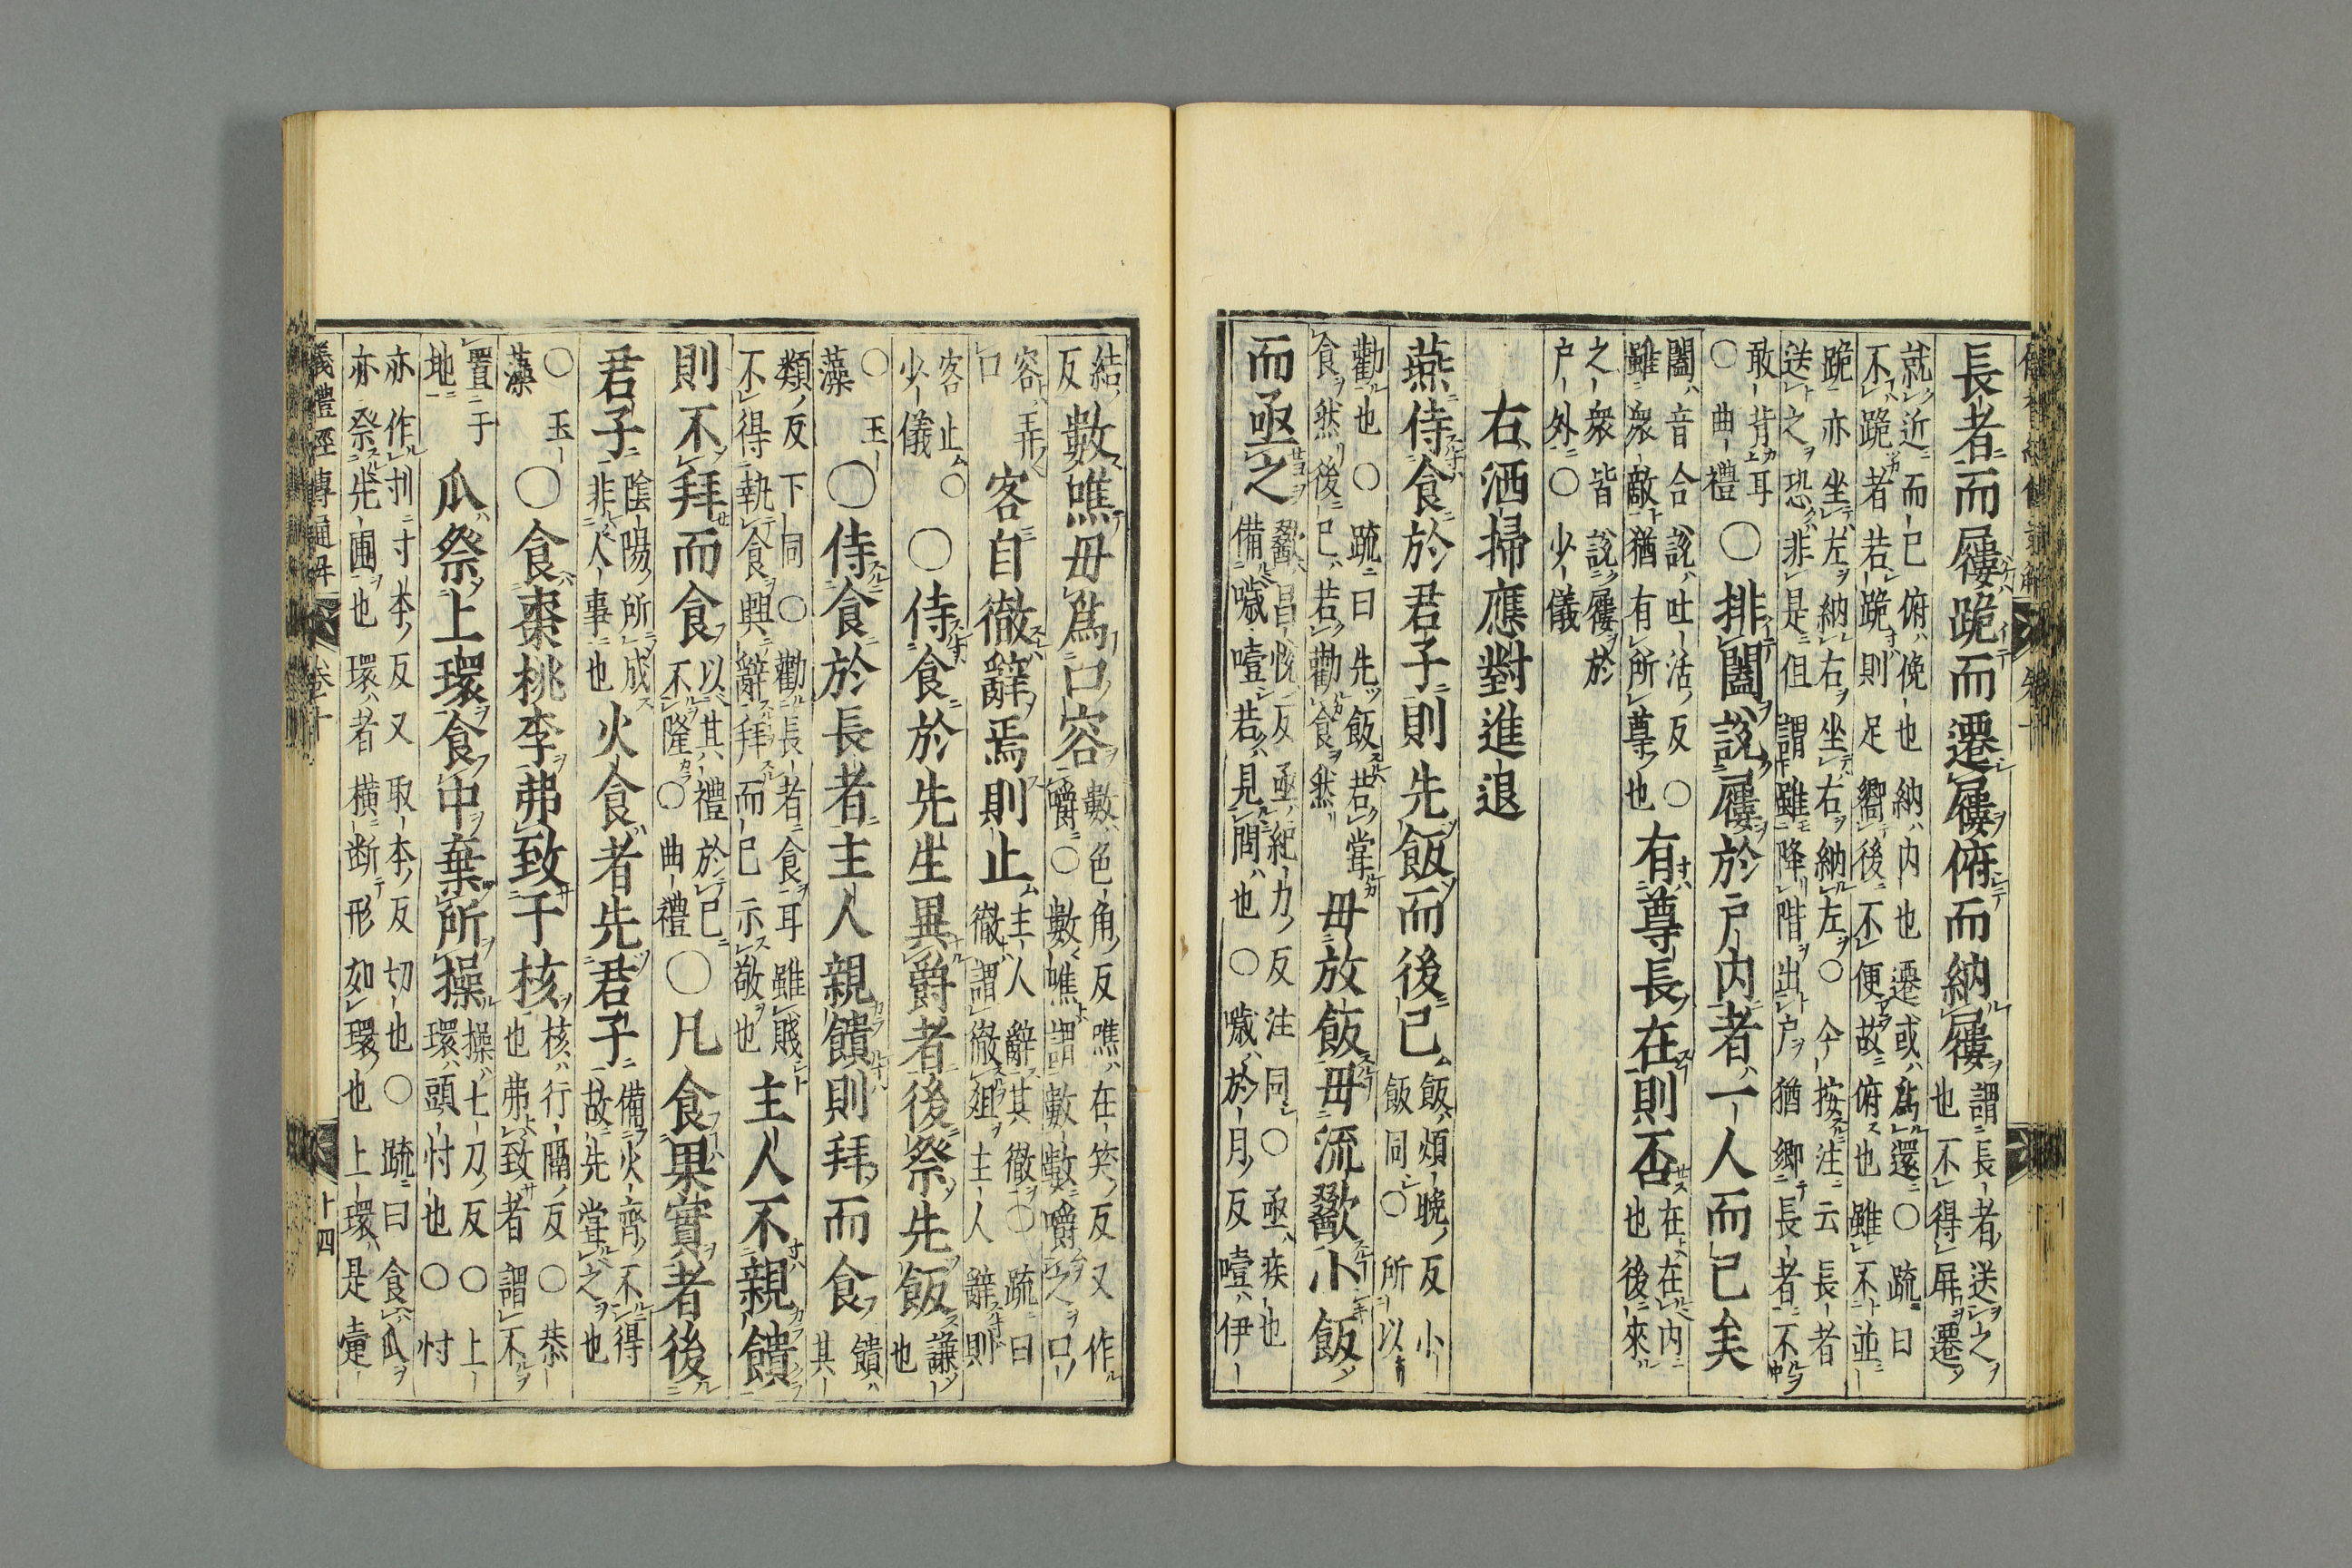 長者而屨跪而遷屨俯而納屨
謂長者送之
也不得屏遷
就近而已俯俛也納内也遷或爲還○疏曰
不跪者若跪則足嚮後不便故俯也雖不並
跪亦坐左納右坐右納左○今按注云長者
送之恐非是但謂雖降階出户猶鄉長者不
敢背耳
○曲禮
○排闔說屨於户内者一人而已矣
闔音合說吐活反○
雖衆敵猶有所尊也
有尊長在則否
在在内
也後來
之衆皆說屨於
户外○少儀
右洒掃應對進退
燕侍食於君子則先飯而後已
飯煩晚反小
飯同○所以
勸也○疏曰先飯若嘗
食然後已若勸食然
毋放飯毋流歠小飯
而亟之
歠昌悅反亟紀力反注同○亟疾也
備噦噎若見問也○噦於月反噎伊
結
反
數噍毋爲口容
數色角反噍在笑反又作
嚼○數噍謂數數嚼之口
容弄
口
客自徹辭焉則止
主人辭其徹○疏曰
徹謂徹俎主人辭則
客止○
少儀
○侍食於先生異爵者後祭先飯
謙
也
○玉
藻
○侍食於長者主人親饋則拜而食
饋
其
類反下同○勸長者食耳雖賤
不得執食興辭拜而已示敬也
主人不親饋
則不拜而食
以其禮於已
不隆○曲禮
○凡食果實者後
君子
陰陽所成
非人事也
火食者先君子
備火齊不得
故先嘗之也
○玉
藻
○食棗桃李弗致于核
核行隔反○恭
也弗致者謂不
置于
地
瓜祭上環食中棄所操
操七刀反○上
環頭忖也○忖
亦作刌寸本反又取本反切也○疏曰食瓜
亦祭先圃也環者橫斷形如環也上環是疐
儀禮經傳通解
卷十
十四